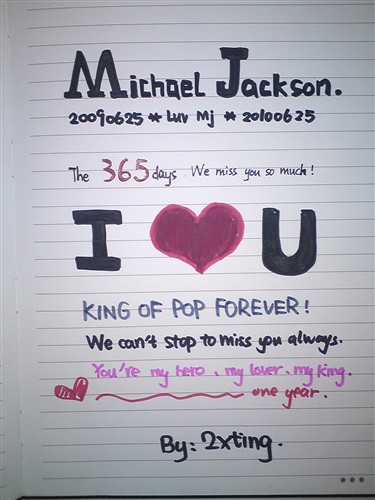 Michael Jackson.
20090625 * Luv Mj * 20100625
The 365 days We miss you so much!
I ♥ U
KING OF POP FOREVER!
We can't stop to miss you always.
You're my hero, my lover, my king.
one year.
By: 2xting.